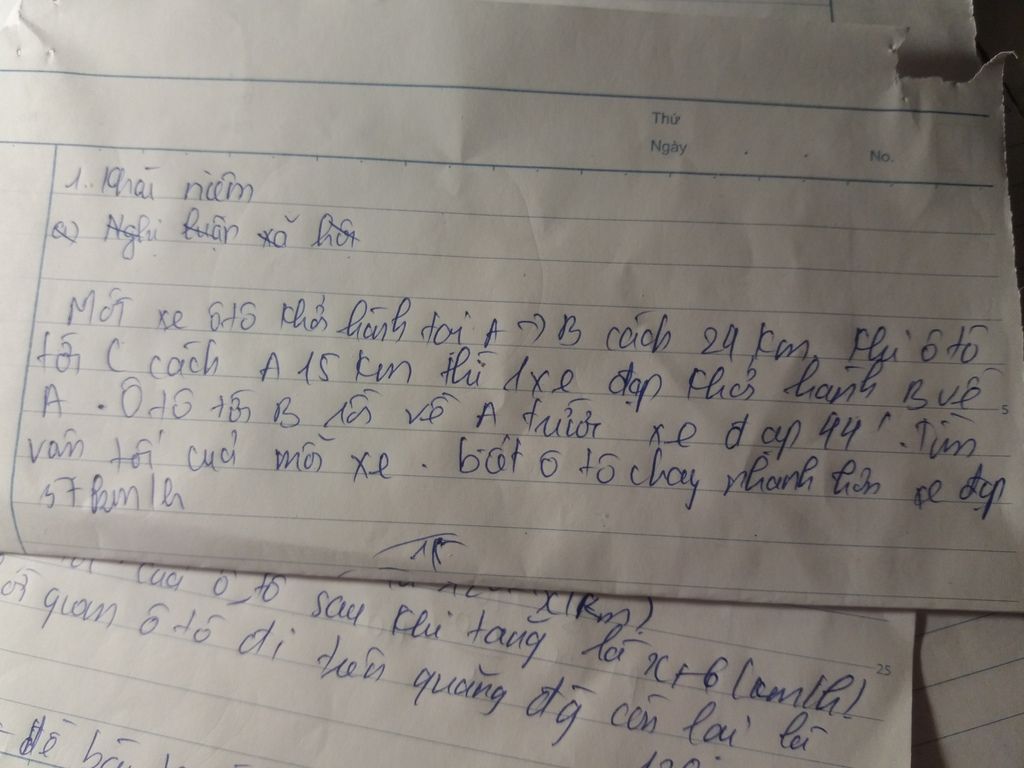 Thứ
Ngày
No.
1. Khái niệm
a) Nghị luận xã hội
Một xe ôtô khởi hành tại A → B cách 24 km, khi ô tô
tới C cách A 15 km thì 1 xe đạp khởi hành B về
A. Ô tô tới B rồi về A trước xe đạp 44'. Tìm
5
vận tốc của mỗi xe. biết ô tô chạy nhanh hơn xe đạp
37 km/h
15
x (km)
của ô tô sau khi tăng là x+6 (km/h)
25
quan ô tô đi trên quãng đg còn lại là
để